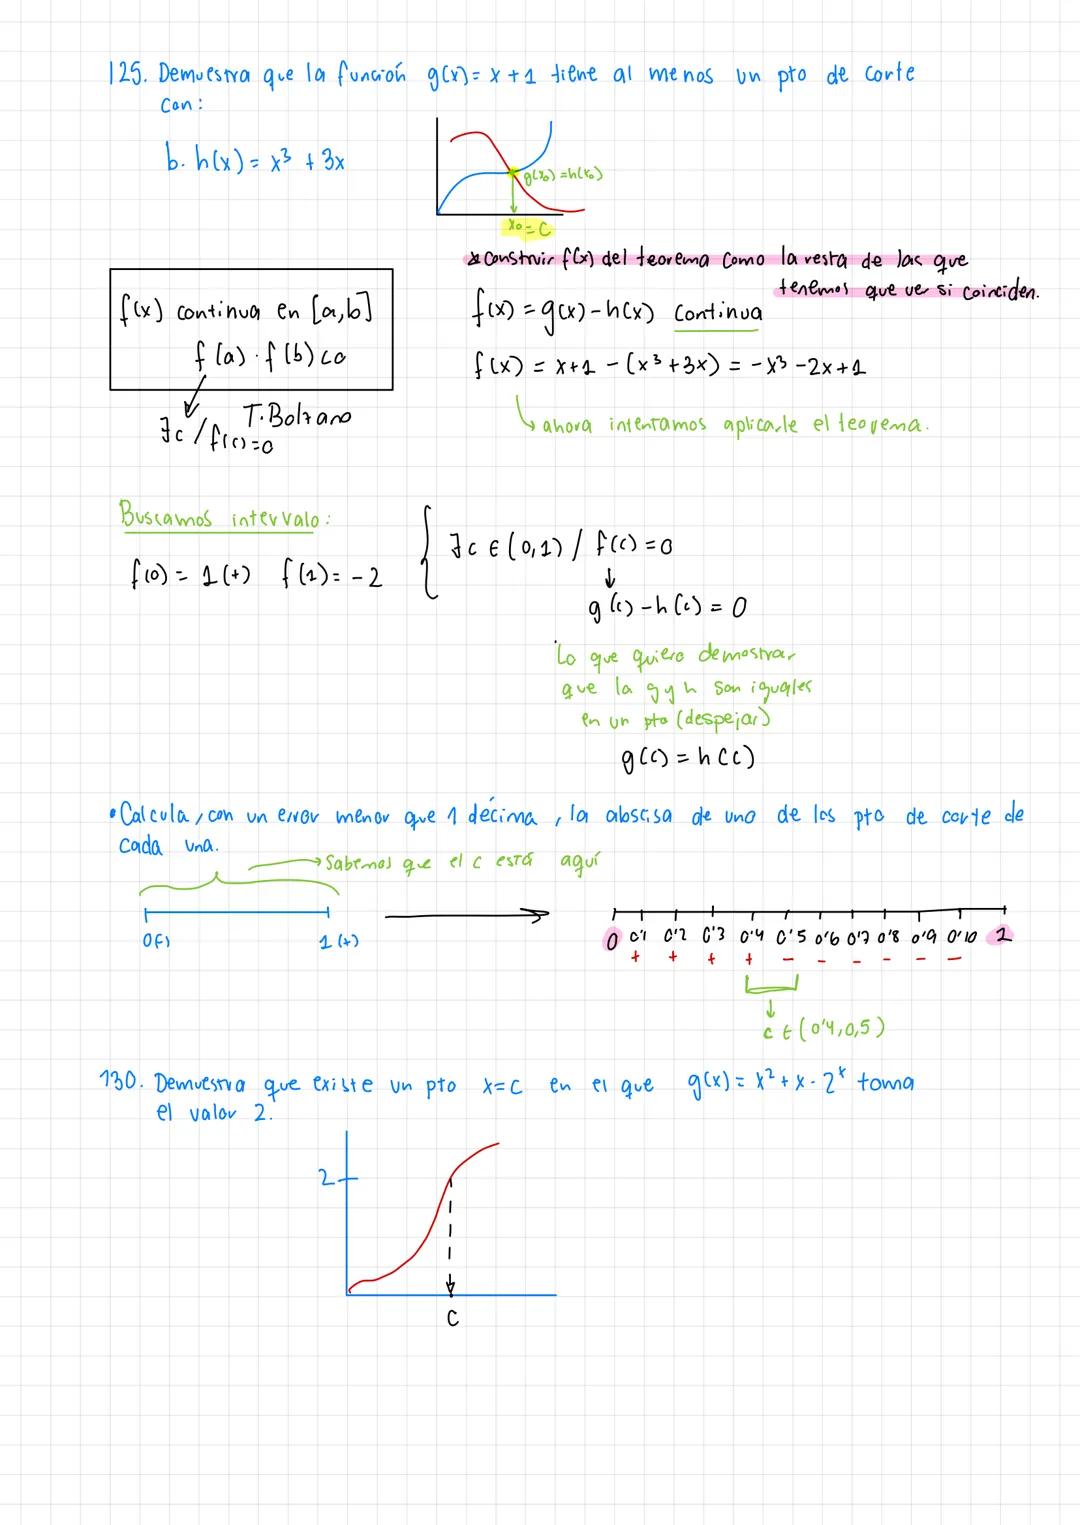 125. Demuestra que la función g(x)= x +1 tiene al menos un pto de corte
con:
b. h(x) = x³ + 3x
g(x₀) = h(x₀)
x₀ = C
* construir f(x) del teorema como la resta de las que
tenemos que ver si coinciden.
f(x) continua en [a,b]
f(a) · f(b) < 0
T. Bolzano
∃c / f(c) = 0
f(x) = g(x) - h(x) continua
f(x) = x+1 - (x³ + 3x) = -x³ - 2x + 1
↳ ahora intentamos aplicarle el teorema.
Buscamos intervalo:
f(0) = 1 (+) f(1) = -2
∃ c ∈ (0,1) / f(c) = 0
↓
g(c) - h(c) = 0
Lo que quiero demostrar
que la g y h son iguales
en un pto (despejar)
g(c) = h(c)
• Calcula, con un error menor que 1 décima, la abscisa de uno de los pto de corte de
cada una.
→ Sabemos que el c está aquí
0(-) 1 (+)
0 0'1 0'2 0'3 0'4 0'5 0'6 0'7 0'8 0'9 0'10 1
+ + + + - - - - - -
↓
c ∈ (0'4, 0,5)
130. Demuestra que existe un pto x=c en el que g(x) = x² + x · 2ˣ toma
el valor 2.
2
C